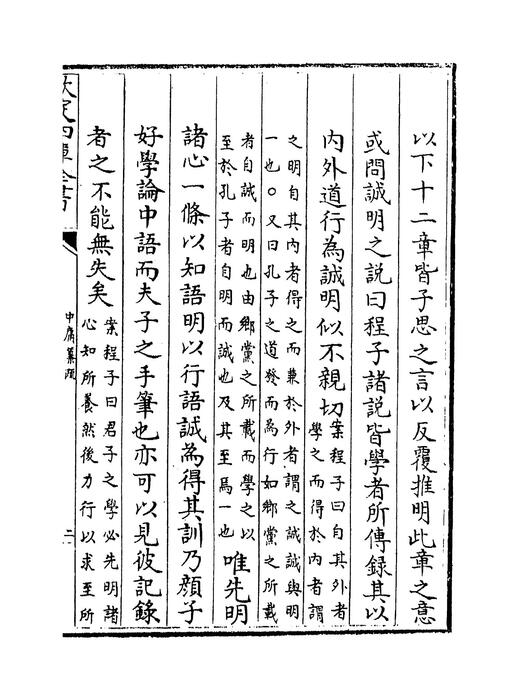 以下十二章皆子思之言以反覆推明此章之意
或問誠明之說曰程子諸說皆學者所傳錄其以
内外道行為誠明似不親切
案程子曰自其外者
學之而得於内者謂
之明自其内者得之而兼於外者謂之誠誠與明
一也○又曰孔子之道發而為行如鄉黨之所載
者自誠而明也由鄉黨之所載而學之以
至於孔子者自明而誠也及其至焉一也
唯先明
諸心一條以知語明以行語誠為得其訓乃顏子
好學論中語而夫子之手筆也亦可以見彼記錄
者之不能無失矣
案程子曰君子之學必先明諸
心知所養然後力行以求至所
欽定四庫全書
中庸纂疏